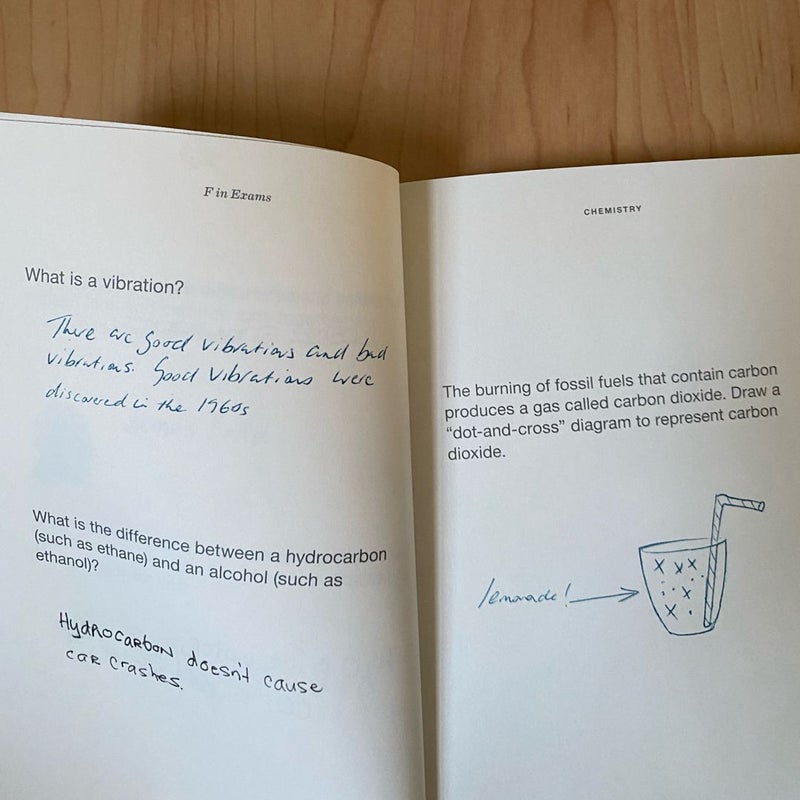 F in Exams
What is a vibration?
There are good vibrations and bad
vibrations. Good vibrations were
discovered in the 1960s
What is the difference between a hydrocarbon
(such as ethane) and an alcohol (such as
ethanol)?
Hydrocarbon doesn't cause
car crashes.
CHEMISTRY
The burning of fossil fuels that contain carbon
produces a gas called carbon dioxide. Draw a
“dot-and-cross” diagram to represent carbon
dioxide.
lemonade!